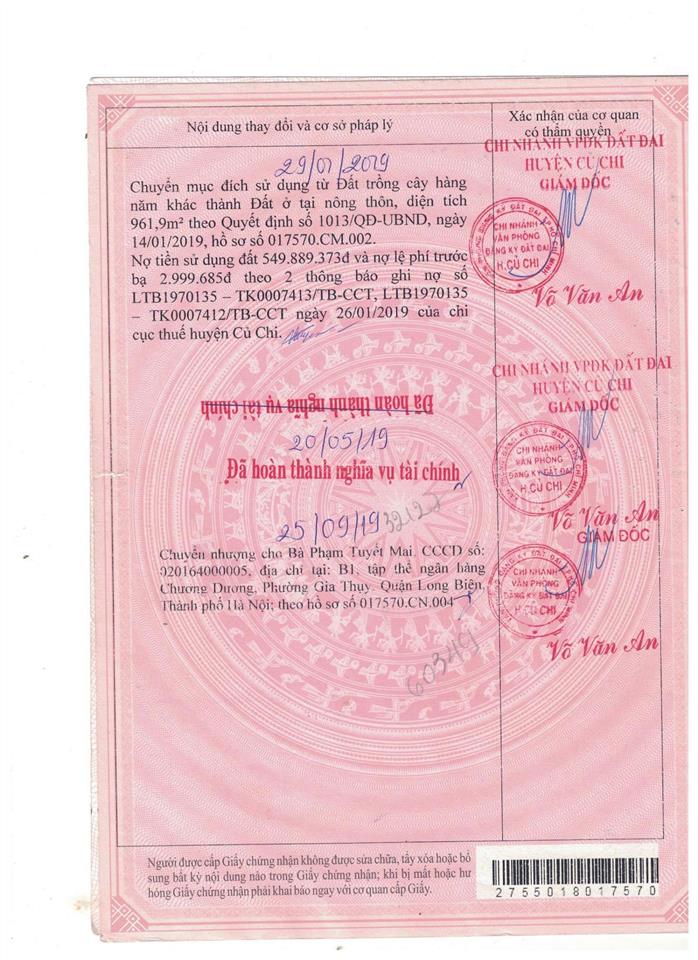 Nội dung thay đổi và cơ sở pháp lý
Xác nhận của cơ quan
có thẩm quyền
29/01/2019
Chuyển mục đích sử dụng từ Đất trồng cây hàng
năm khác thành Đất ở tại nông thôn, diện tích
961,9m² theo Quyết định số 1013/QĐ-UBND, ngày
14/01/2019, hồ sơ số 017570.CM.002.
Nợ tiền sử dụng đất 549.889.373đ và nợ lệ phí trước
bạ 2.999.685đ theo 2 thông báo ghi nợ số
LTB1970135 – TK0007413/TB-CCT, LTB1970135
– TK0007412/TB-CCT ngày 26/01/2019 của chi
cục thuế huyện Củ Chi.
CHI NHÁNH VPĐK ĐẤT ĐAI
HUYỆN CỦ CHI
GIÁM ĐỐC
VĂN PHÒNG ĐĂNG KÝ ĐẤT ĐAI TP.HỒ CHÍ MINH
CHI NHÁNH
VĂN PHÒNG
ĐĂNG KÝ ĐẤT ĐAI
H.CỦ CHI
Võ Văn An
Đã hoàn thành nghĩa vụ tài chính
20/05/19
Đã hoàn thành nghĩa vụ tài chính
CHI NHÁNH VPĐK ĐẤT ĐAI
HUYỆN CỦ CHI
GIÁM ĐỐC
CHI NHÁNH
VĂN PHÒNG
ĐĂNG KÝ ĐẤT ĐAI
H.CỦ CHI
Võ Văn An
25/09/19
Chuyển nhượng cho Bà Phạm Tuyết Mai, CCCD số:
020164000005, địa chỉ tại: B1, tập thể ngân hàng
Chương Dương, Phường Gia Thụy, Quận Long Biên,
Thành phố Hà Nội; theo hồ sơ số 017570.CN.004
60349
GIÁM ĐỐC
CHI NHÁNH
VĂN PHÒNG
ĐĂNG KÝ ĐẤT ĐAI
H.CỦ CHI
Võ Văn An
Người được cấp Giấy chứng nhận không được sửa chữa, tẩy xóa hoặc bổ
sung bất kỳ nội dung nào trong Giấy chứng nhận; khi bị mất hoặc hư
hỏng Giấy chứng nhận phải khai báo ngay với cơ quan cấp Giấy.
2755018017570